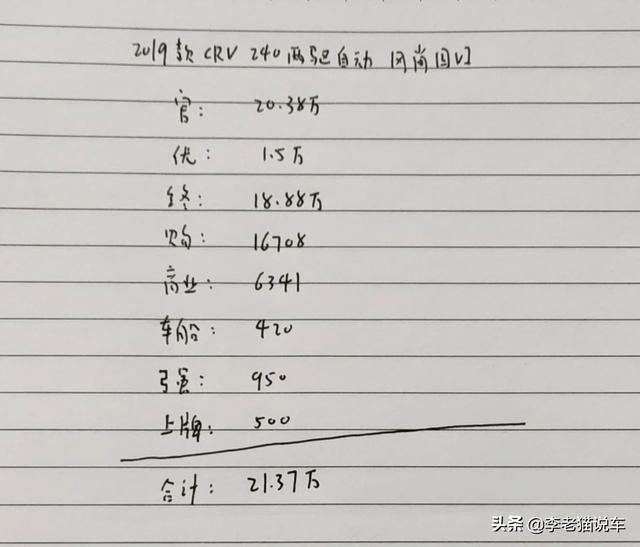 2019款 CRV 240两驱自动 风尚国VI
官: 20.38万
优: 1.5万
终: 18.88万
购: 16708
商业: 6341
车船: 420
引强: 950
上牌: 500
合计: 21.37万
头条 @李老猫说车